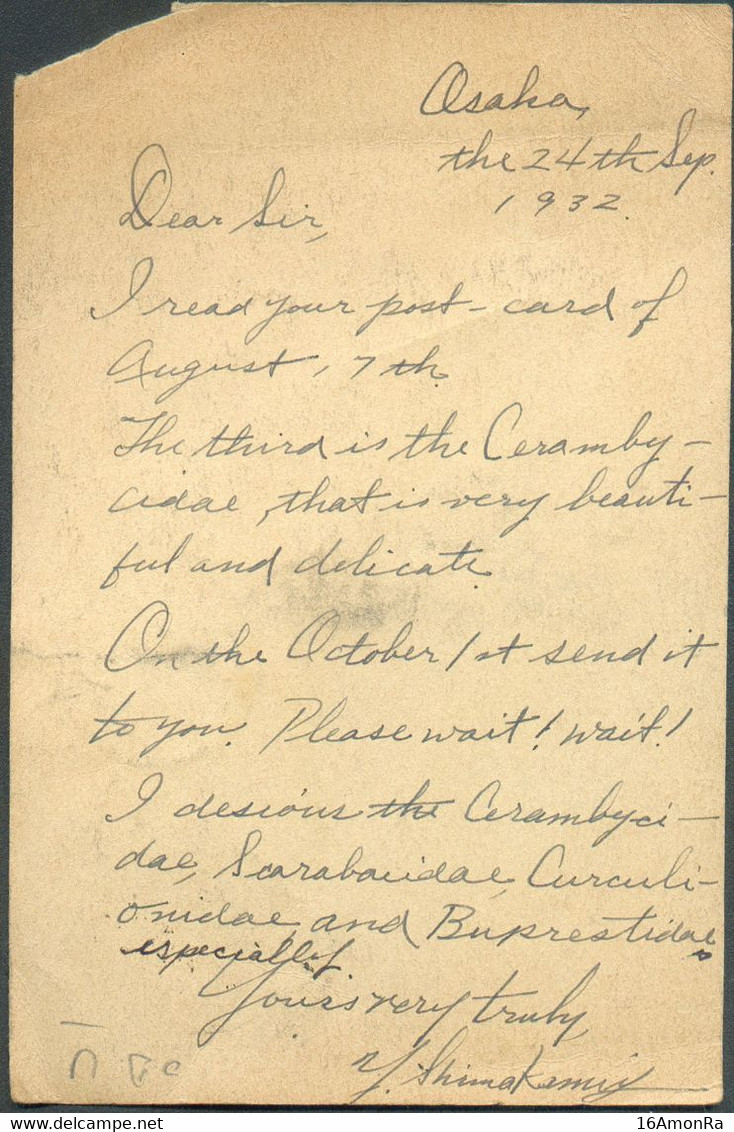 Osaka,
the 24th Sep.
1932.
Dear Sir,
I read your post-card of
August, 7th.
The third is the Ceramby-
cidae, that is very beauti-
ful and delicate.
On the October 1st send it
to you. Please wait! wait!
I desious the Ceramby​ci-
dae, Scarabaeidae, Curculi-
onidae and Buprestidae
especially.
Yours very truly,
Y. Shimakami
16AmonRa